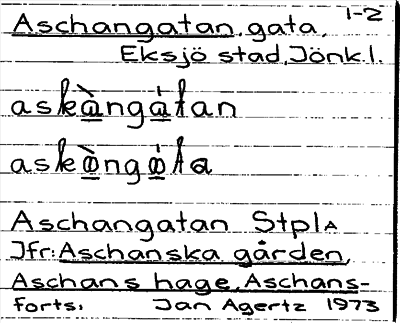 1-2
Aschangatan, gata,
Eksjö stad, Jönk.l.
askàngátan
Aschangatan StplA
Jfr: Aschanska gården,
Aschans hage, Aschans-
forts. Jan Agertz 1973